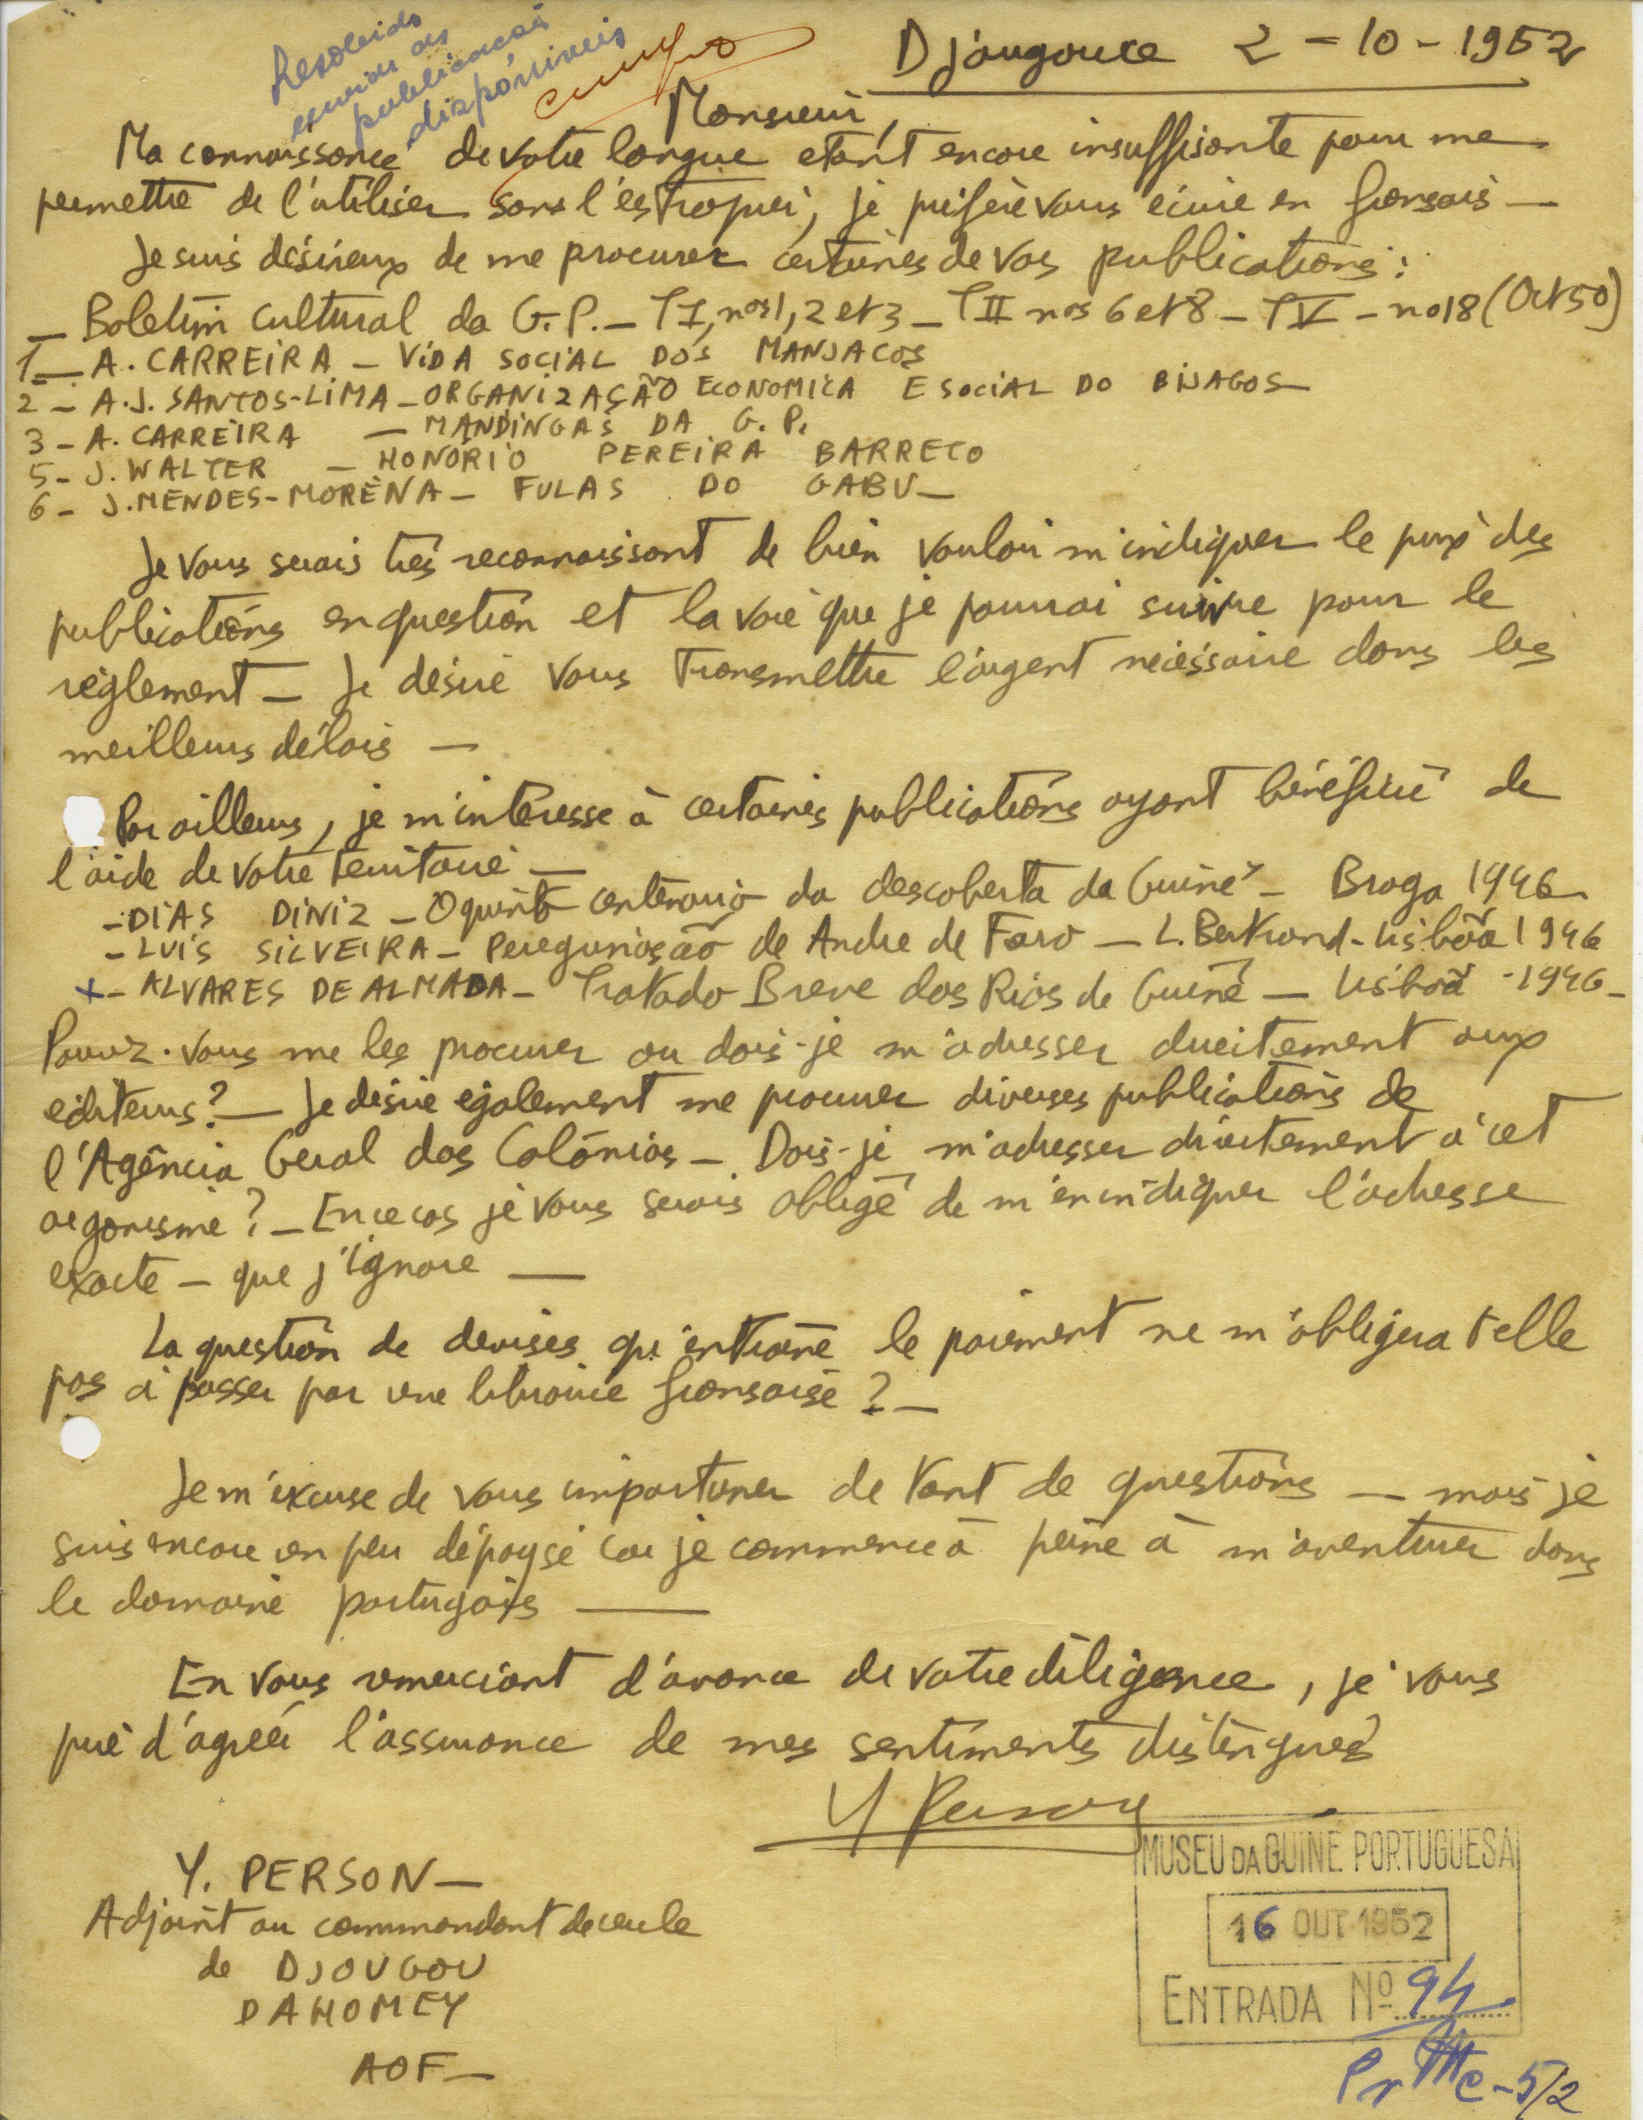 Resolvido
enviar as
publicacões
disponiveis
Djougou le 2-10-1952
Monsieur,
Ma connaissance de votre langue etant encore insuffisante pour me
permettre de l'utiliser sans l'estropier, je préfère vous écrire en français —
Je suis désireux de me procurer certaines de vos publications :
— Boletim Cultural da G.P. — T I, nos 1, 2 et 3 — T II nos 6 et 8 — T V — no 18 (Oct 50)
1 — A. CARREIRA — VIDA SOCIAL DOS MANJACOS
2 — A.J. SANTOS-LIMA — ORGANIZAÇÃO ECONOMICA E SOCIAL DO BIJAGOS —
3 — A. CARREIRA — MANDINGAS DA G. P.
5 — J. WALTER — HONÓRIO PEREIRA BARRETO
6 — J. MENDES-MORENA — FULAS DO GABU —
Je vous serais très reconnaissant de bien vouloir m'indiquer le prix des
publications en question et la voie que je pourrai suivre pour le
règlement — Je désire vous transmettre l'argent nécessaire dans les
meilleurs délais —
Par ailleurs, je m'intéresse à certaines publications ayant bénéficié de
l'aide de votre territoire —
— DIAS DINIZ — O quinto centenario da descoberta da Guiné — Braga 1946
— LUIS SILVEIRA — Peregrinação de Andre de Faro — L. Bertrand - Lisbõa 1946
x — ALVARES DE ALMADA — Tratado Breve dos Rios de Guiné — Lisboã - 1946 —
Pouvez-vous me les procurer ou dois-je m'adresser directement aux
editeurs ? — Je désire également me procurer diverses publications de
l'Agência Geral dos Colónias — Dois-je m'adresser directement à cet
organisme ? — En ce cas je vous serais obligé de m'en indiquer l'adresse
exacte — que j'ignore —
La question de devises qu'entraine le paiement ne m'obligera t elle
pas à passer par une librairie française ? —
Je m'excuse de vous importuner de tant de questions — mais je
suis encore un peu dépaysé car je commence à peine à m'aventurer dans
le domaine portugais —
En vous remerciant d'avance de votre diligence, je vous
prie d'agréer l'assurance de mes sentiments distingués
Y Person
Y. PERSON —
Adjoint au commandant de cercle
de DJOUGOU
DAHOMEY
AOF —
MUSEU DA GUINÉ PORTUGUESA
16 OUT 1952
ENTRADA Nº 94